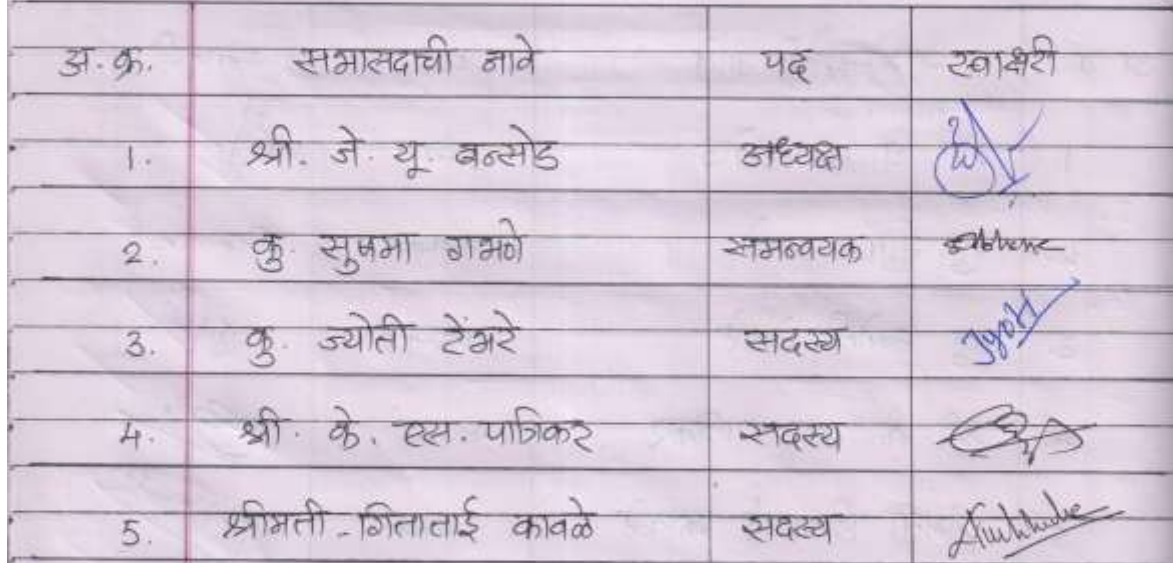 अ. क्र. सभासदाची नावे पद स्वाक्षरी
1. श्री. जे. यू. बन्सोड अध्यक्ष
2. कु. सुषमा गाभणे समन्वयक
3. कु. ज्योती टेंभरे सदस्य Jyoti
4. श्री. के. एस. पात्रिकर सदस्य
5. श्रीमती - गिताताई कावळे सदस्य